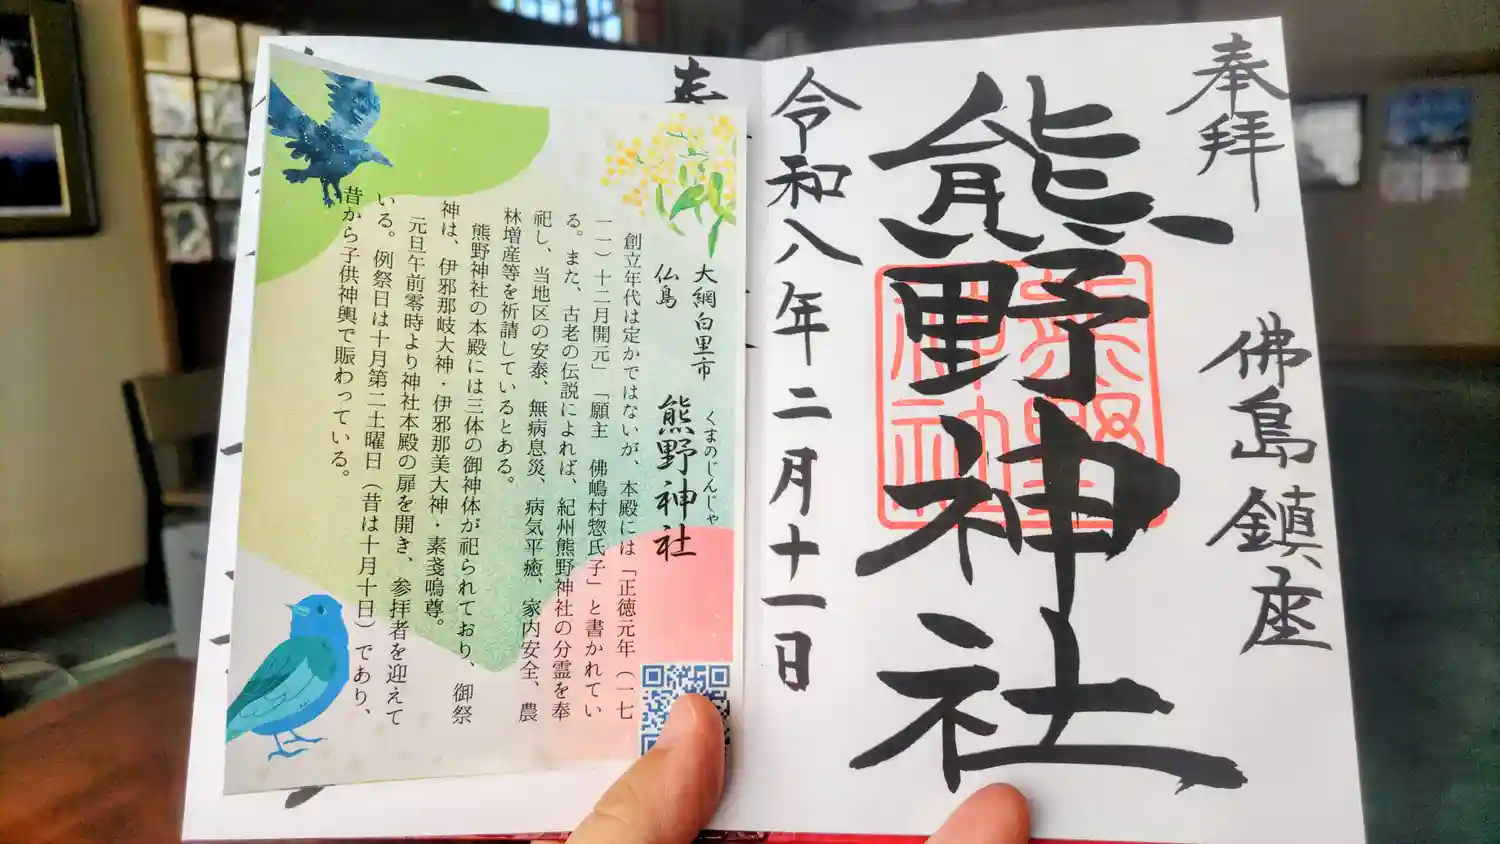 奉拝
佛島鎮座
熊野神社
熊野
神社
令和八年二月十一日
奉
大網白里市
仏島
熊野神社
くまのじんじゃ
創立年代は定かではないが、本殿には「正徳元年（一七
一一）十二月開元」「願主　佛嶋村惣氏子」と書かれてい
る。また、古老の伝説によれば、紀州熊野神社の分霊を奉
祀し、当地区の安泰、無病息災、病気平癒、家内安全、農
林増産等を祈請しているとある。
熊野神社の本殿には三体の御神体が祀られており、御祭
神は、伊邪那岐大神・伊邪那美大神・素戔嗚尊。
元旦午前零時より神社本殿の扉を開き、参拝者を迎えて
いる。例祭日は十月第二土曜日（昔は十月十日）であり、
昔から子供神輿で賑わっている。